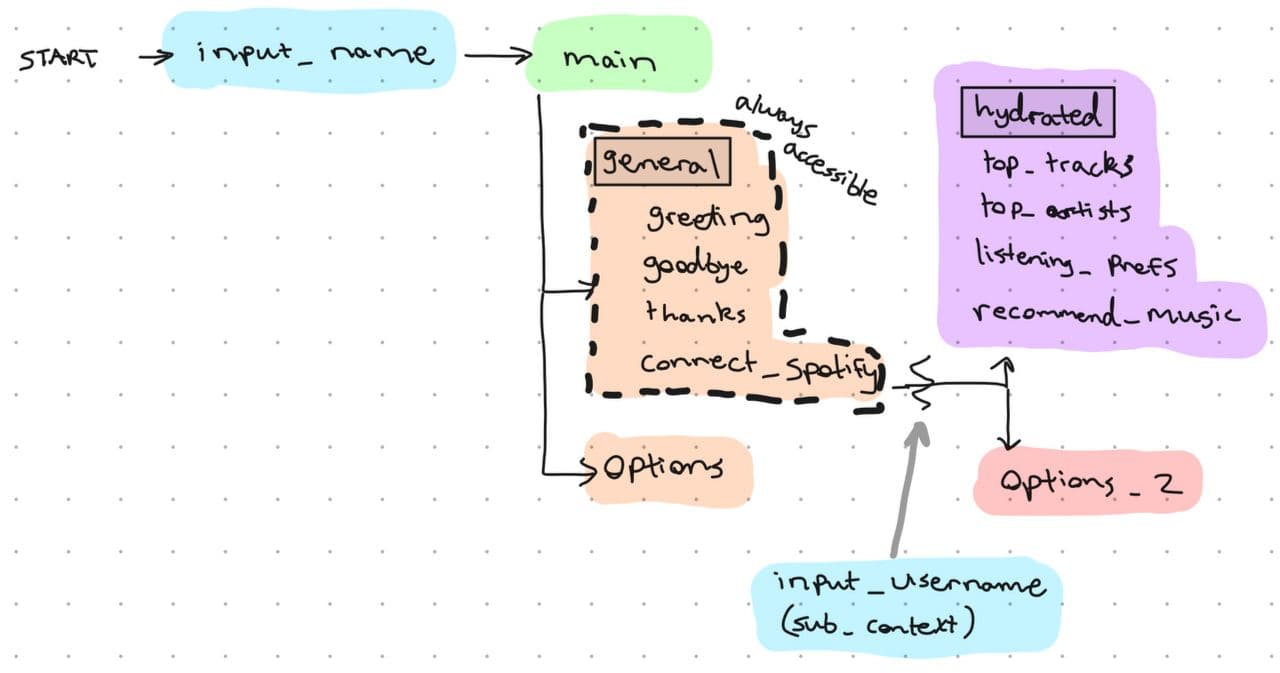 START
input_name
main
always
accessible
general
greeting
goodbye
thanks
connect_spotify
options
hydrated
top_tracks
top_artists
listening_prefs
recommend_music
options_2
input_username
(sub_context)